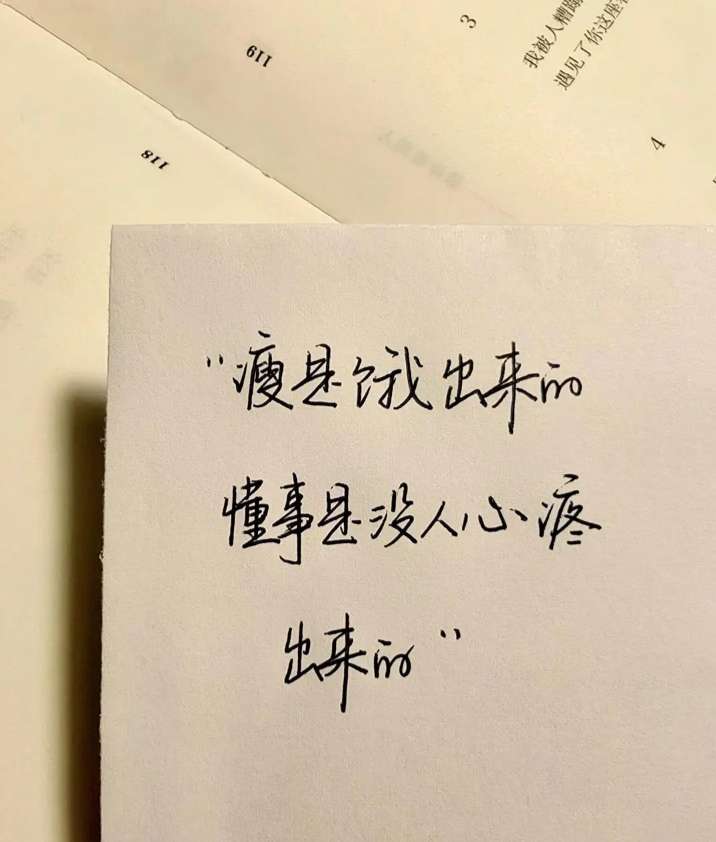 119
3
我被人糟
遇见了你这座
4
118
"瘦是饿出来的
懂事是没人心疼
出来的"